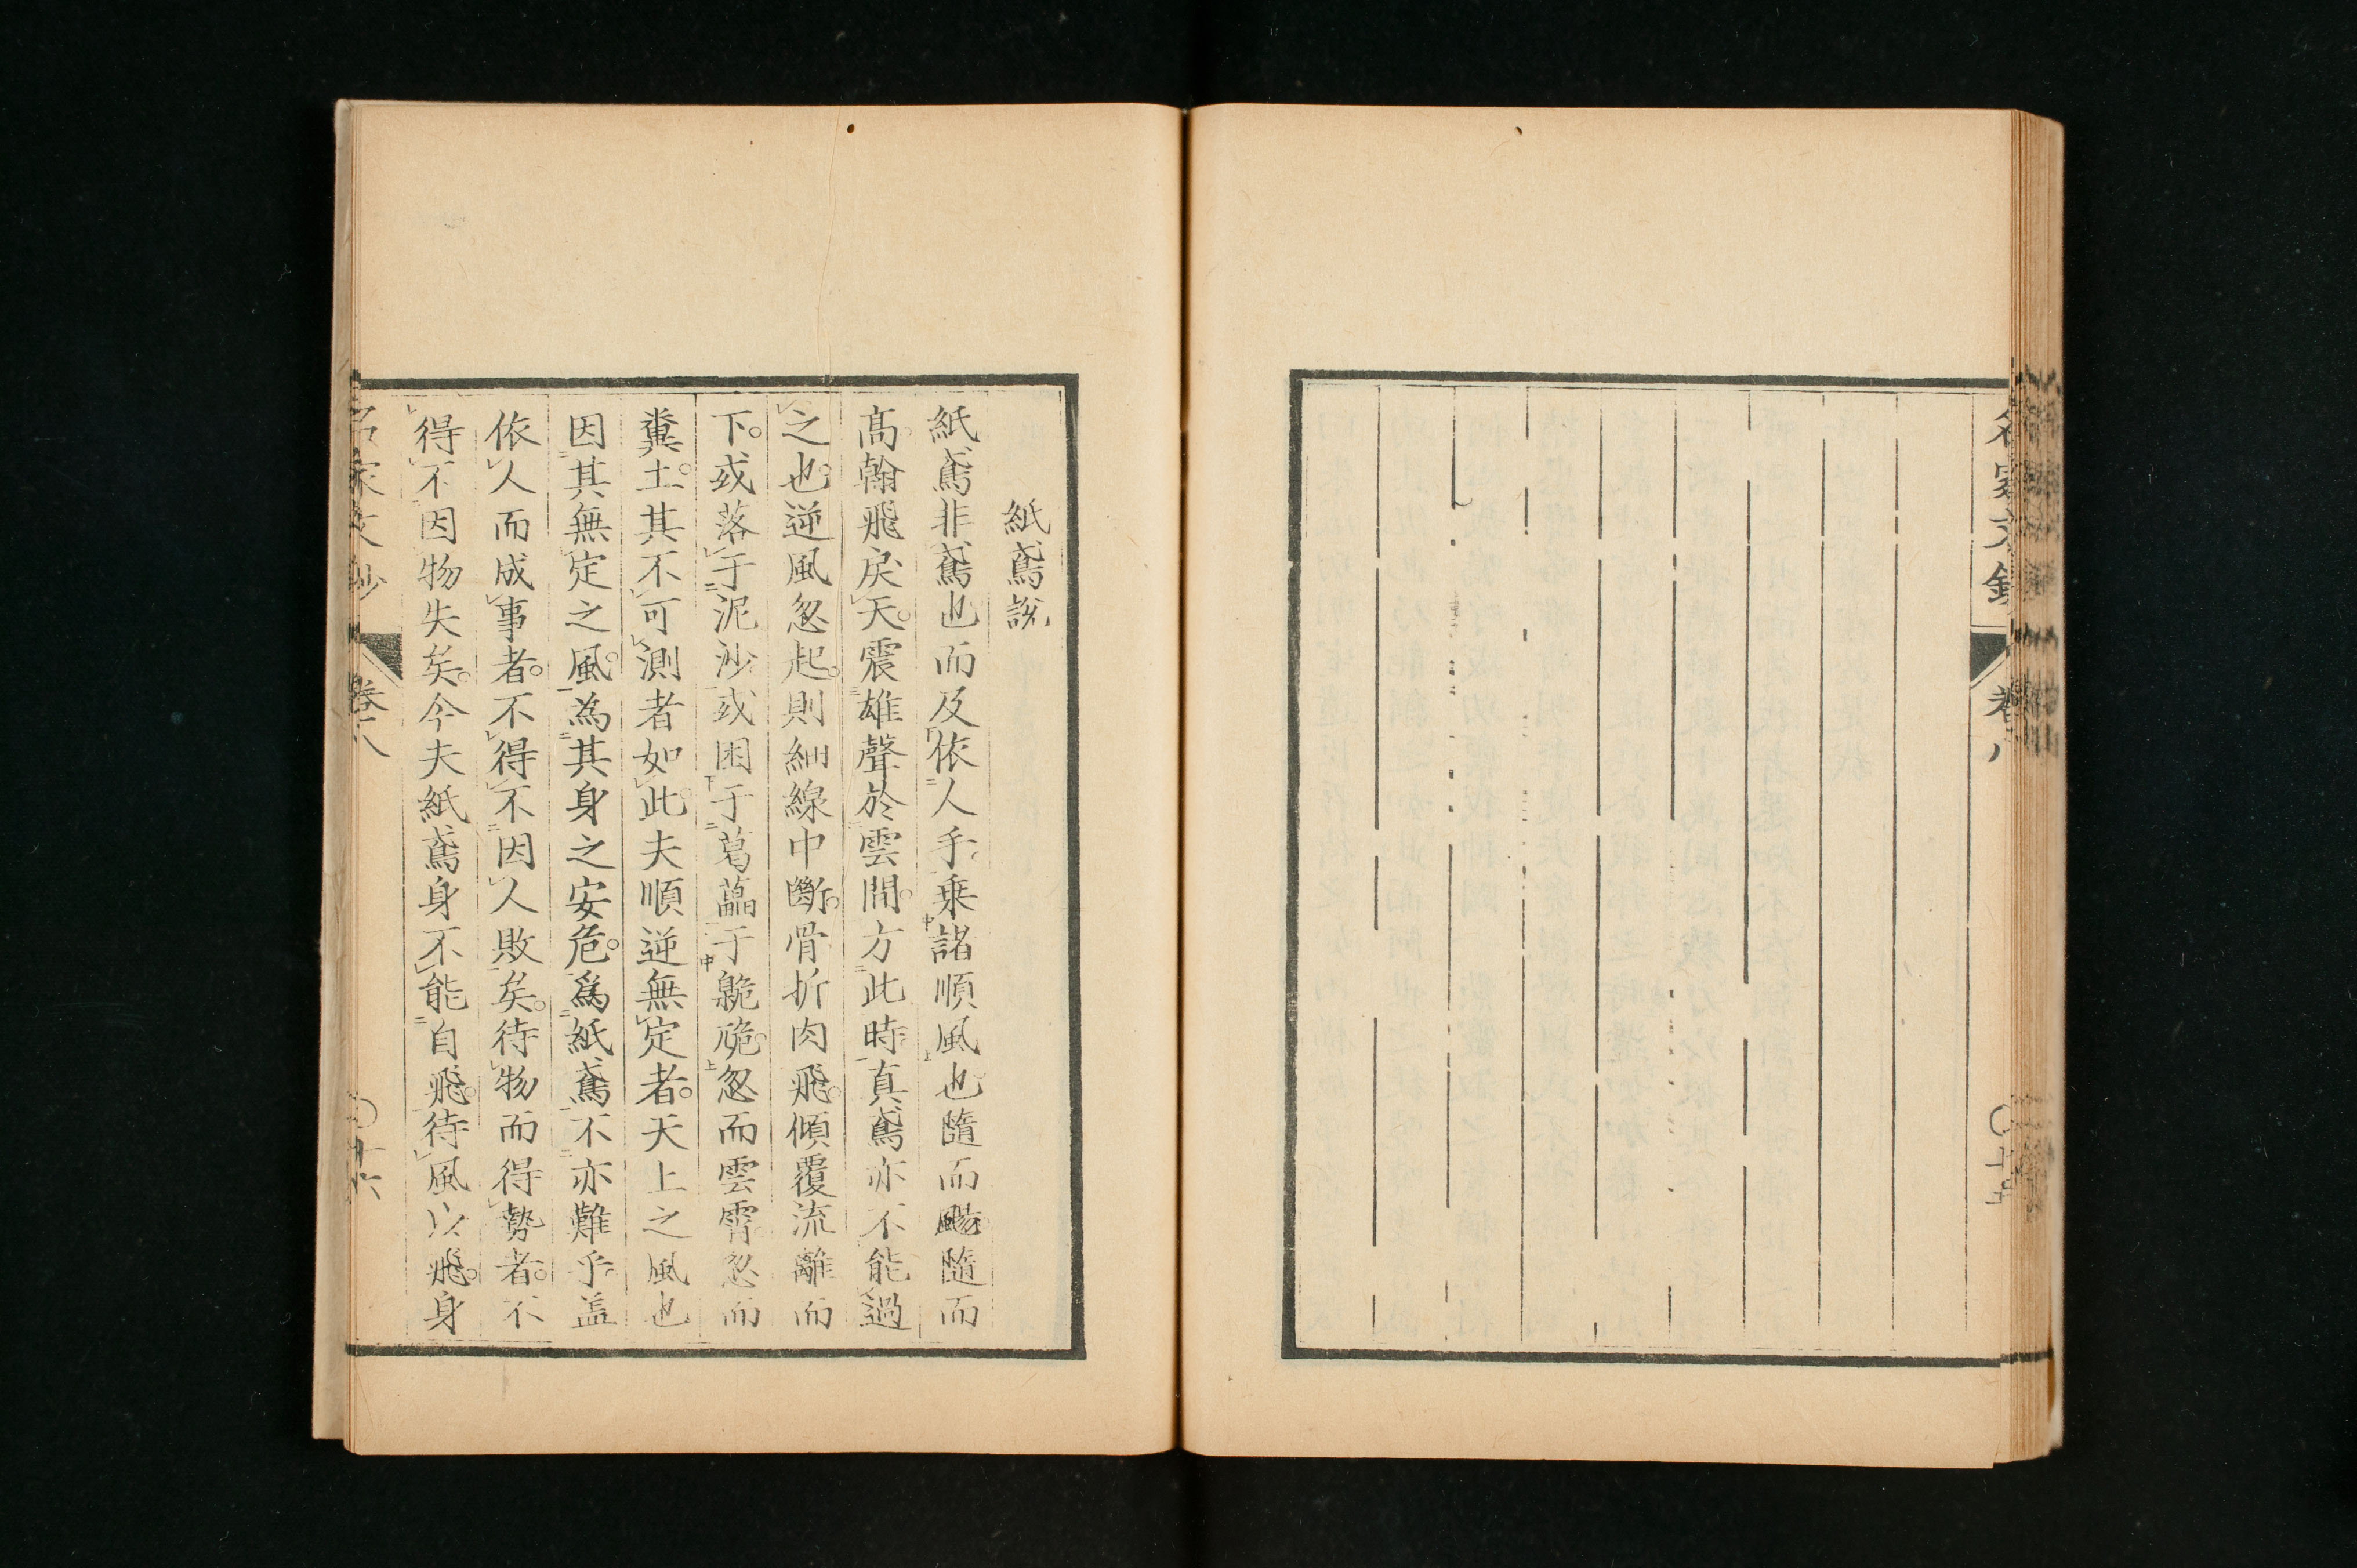 名家文鈔
卷八
〇十五
紙鳶說
紙鳶非鳶也而及依人手乗諸順風也隨而颺隨而
高翰飛戻天震雄聲於雲間方此時真鳶亦不能過
之也逆風忽起則細線中斷骨折肉飛傾覆流離而
下或落于泥沙或困于葛藟于臲卼忽而雲霄忽而
糞土其不可測者如此夫順逆無定者天上之風也
因其無定之風為其身之安危爲紙鳶不亦難乎盖
依人而成事者不得不因人敗矣待物而得勢者不
得不因物失矣今夫紙鳶身不能自飛待風以飛身
名家文抄
卷八
〇十六